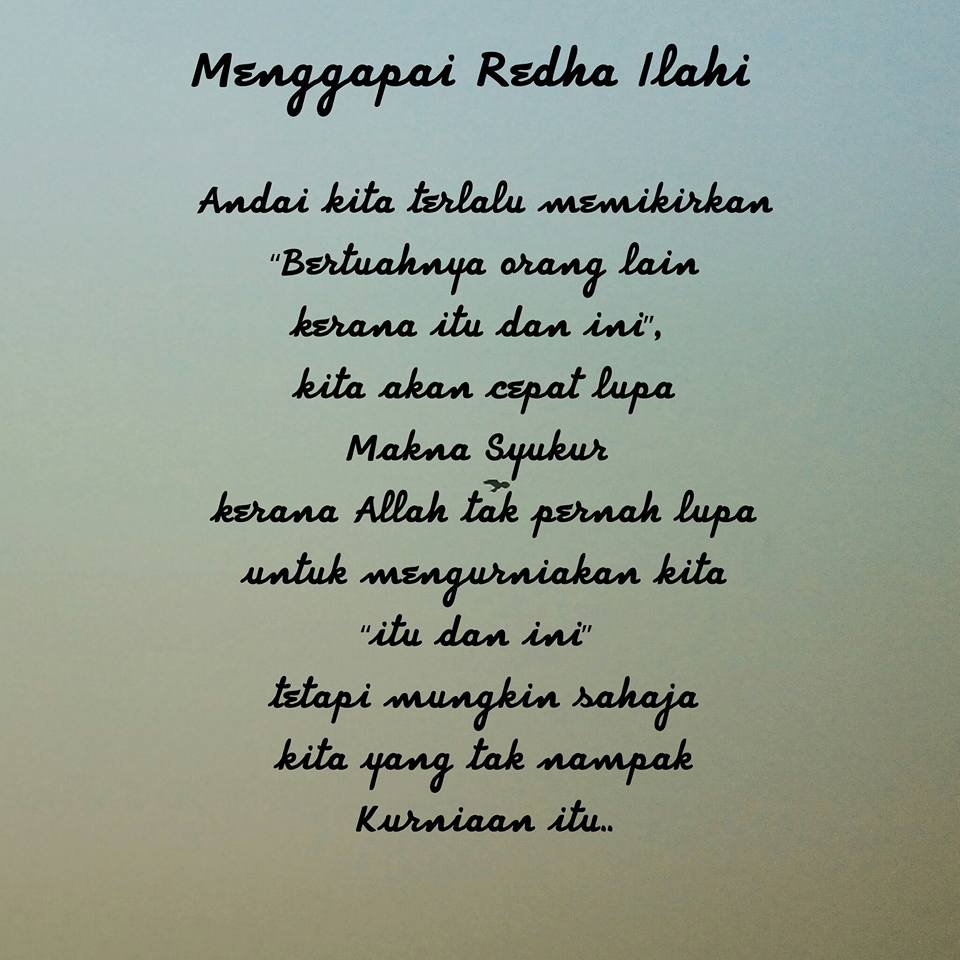 Menggapai Redha Ilahi
Andai kita terlalu memikirkan
“Bertuahnya orang lain
kerana itu dan ini”,
kita akan cepat lupa
Makna Syukur
kerana Allah tak pernah lupa
untuk mengurniakan kita
“itu dan ini”
tetapi mungkin sahaja
kita yang tak nampak
Kurniaan itu..